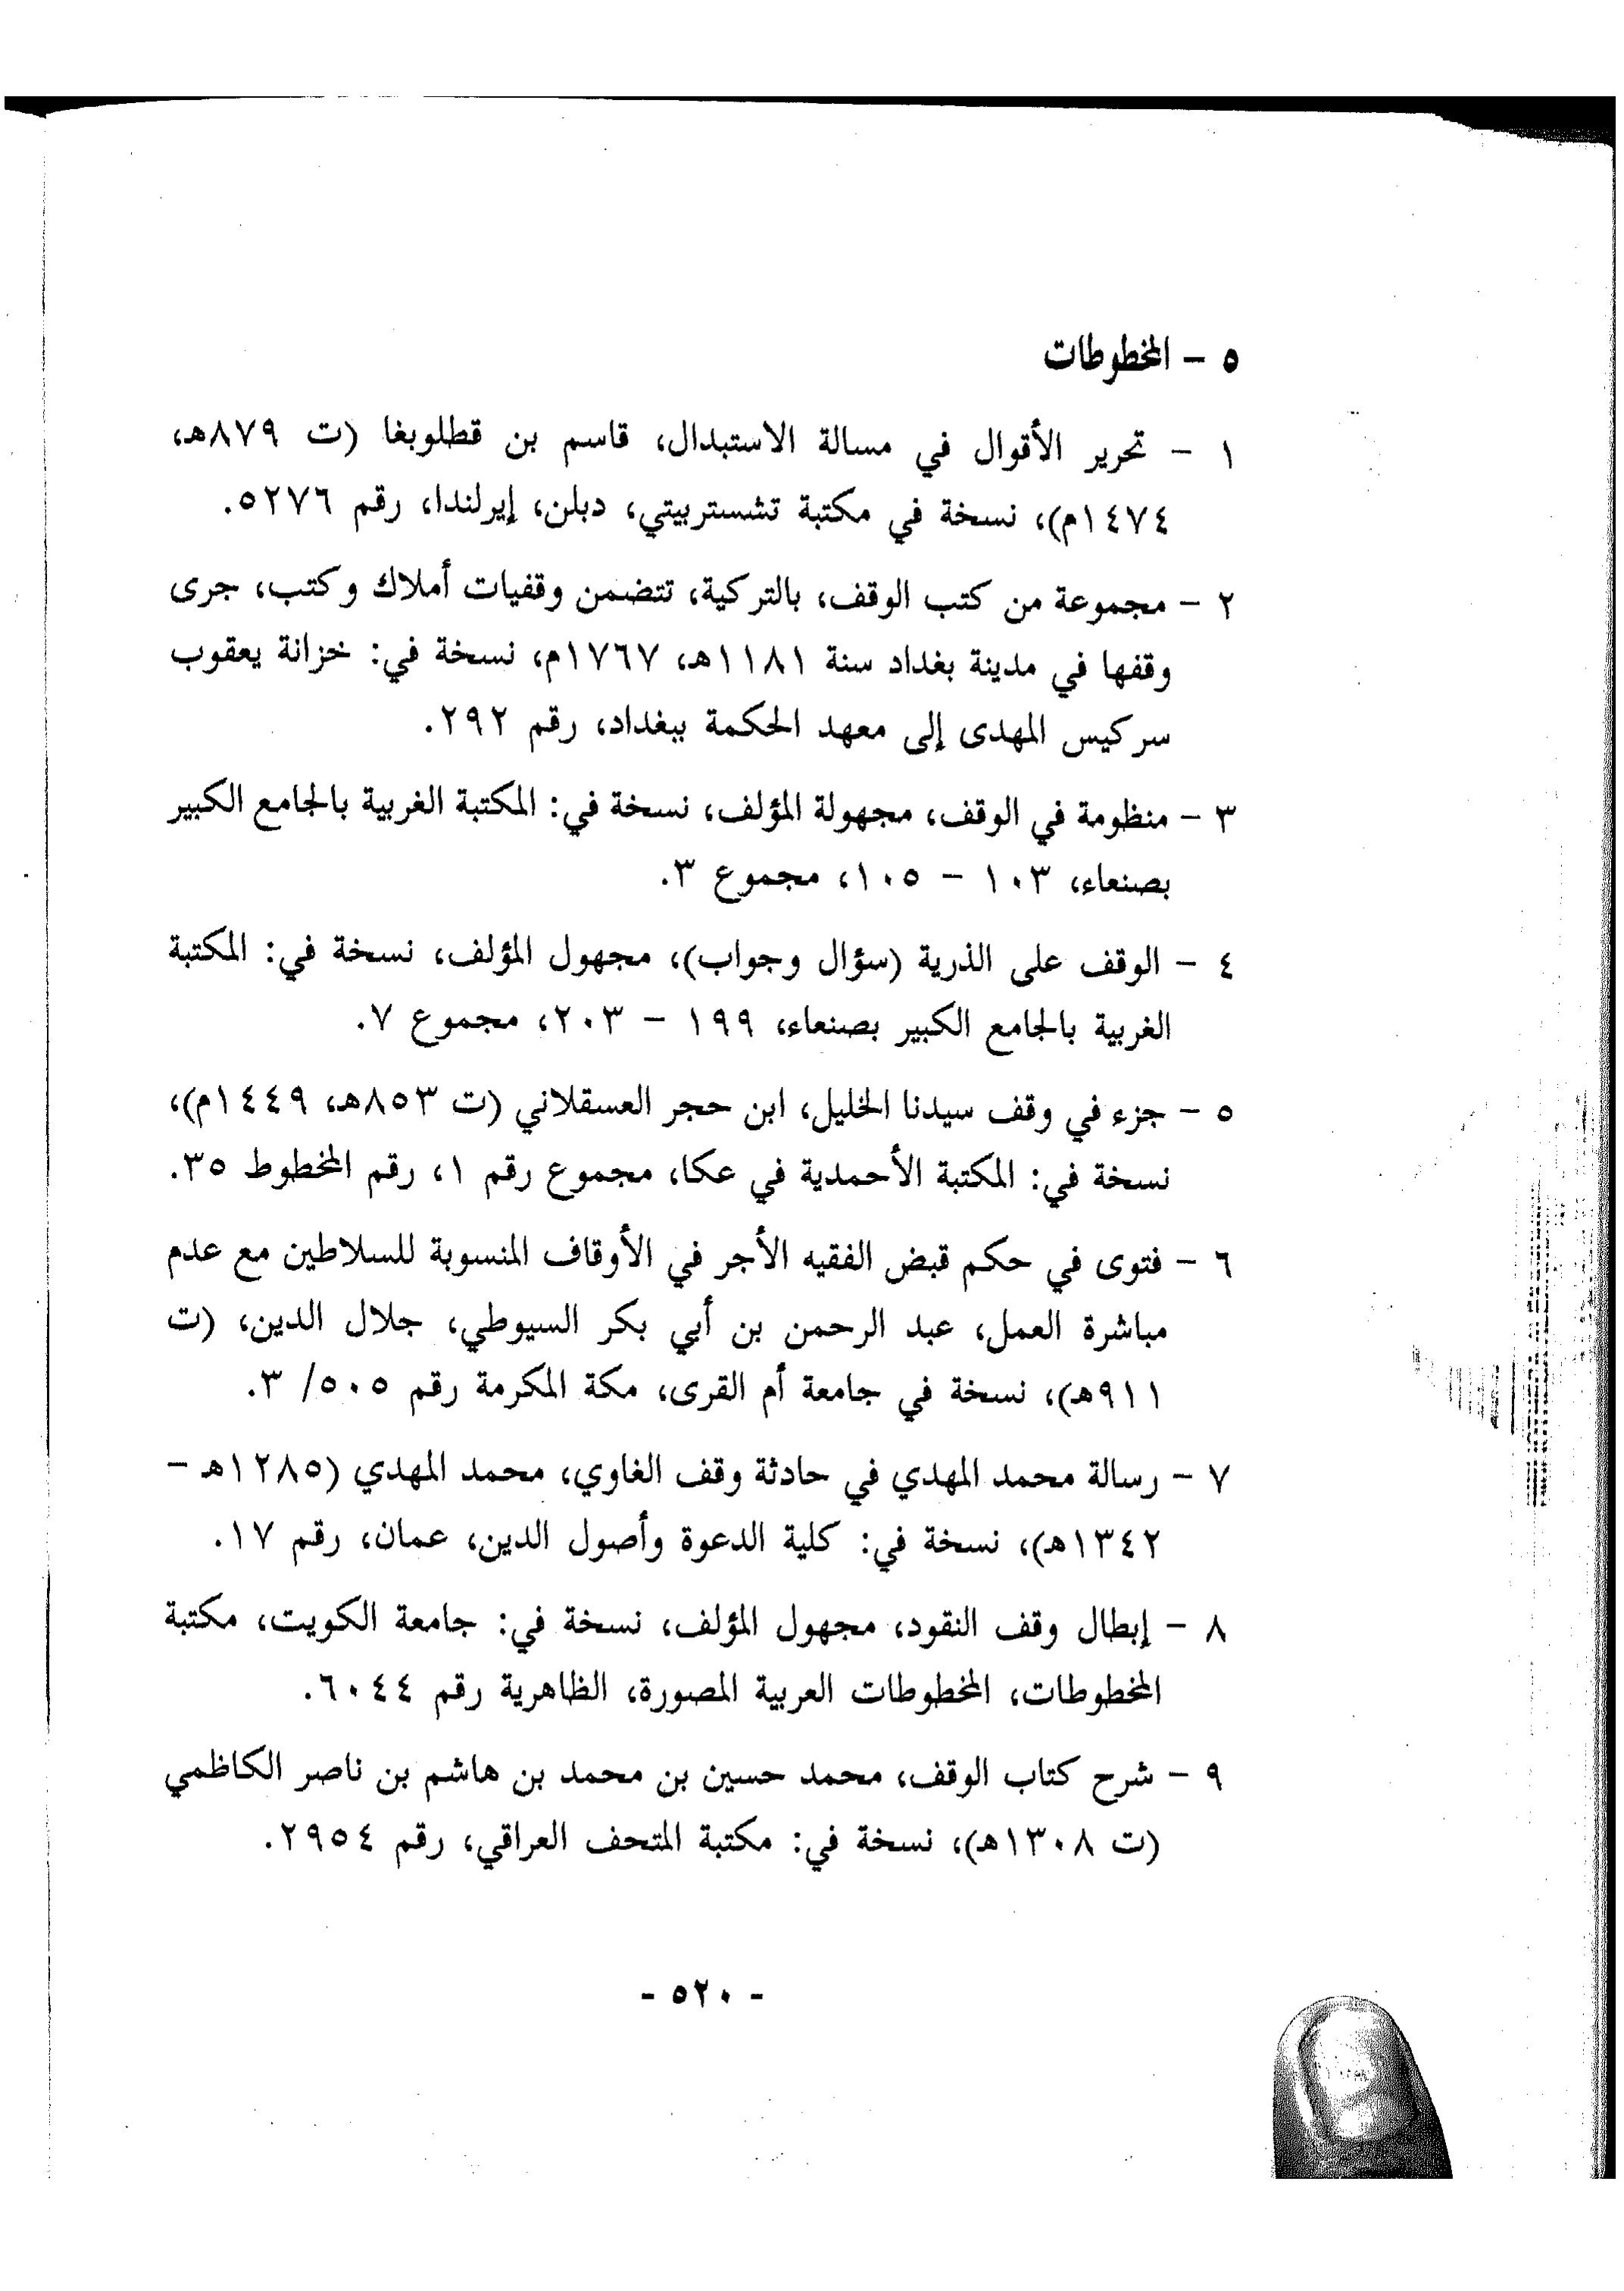 ٥ - المخطوطات
١ - تحرير الأقوال في مسالة الاستبدال، قاسم بن قطلوبغا (ت ٨٧٩هـ،
١٤٧٤م)، نسخة في مكتبة تشستربيتي، دبلن، إيرلندا، رقم ٥٢٧٦.
٢ - مجموعة من كتب الوقف، بالتركية، تتضمن وقفيات أملاك وكتب، جرى
وقفها في مدينة بغداد سنة ١١٨١هـ، ١٧٦٧م، نسخة في: خزانة يعقوب
سركيس المهدى إلى معهد الحكمة ببغداد، رقم ٢٩٢.
٣ - منظومة في الوقف، مجهولة المؤلف، نسخة في: المكتبة الغربية بالجامع الكبير
بصنعاء، ١٠٣ - ١٠٥، مجموع ٣.
٤ - الوقف على الذرية (سؤال وجواب)، مجهول المؤلف، نسخة في: المكتبة
الغربية بالجامع الكبير بصنعاء، ١٩٩ - ٢٠٣، مجموع ٧.
٥ - جزء في وقف سيدنا الخليل، ابن حجر العسقلاني (ت ٨٥٣هـ، ١٤٤٩م)،
نسخة في: المكتبة الأحمدية في عكا، مجموع رقم ١، رقم المخطوط ٣٥.
٦ - فتوى في حكم قبض الفقيه الأجر في الأوقاف المنسوبة للسلاطين مع عدم
مباشرة العمل، عبد الرحمن بن أبي بكر السيوطي، جلال الدين، (ت
٩١١هـ)، نسخة في جامعة أم القرى، مكة المكرمة رقم ٥٠٥/ ٣.
٧ - رسالة محمد المهدي في حادثة وقف الغاوي، محمد المهدي (١٢٨٥هـ -
١٣٤٢هـ)، نسخة في: كلية الدعوة وأصول الدين، عمان، رقم ١٧.
٨ - إبطال وقف النقود، مجهول المؤلف، نسخة في: جامعة الكويت، مكتبة
المخطوطات، المخطوطات العربية المصورة، الظاهرية رقم ٦٠٤٤.
٩ - شرح كتاب الوقف، محمد حسين بن محمد بن هاشم بن ناصر الكاظمي
(ت ١٣٠٨هـ)، نسخة في: مكتبة المتحف العراقي، رقم ٢٩٥٤.
- ٥٢٠ -